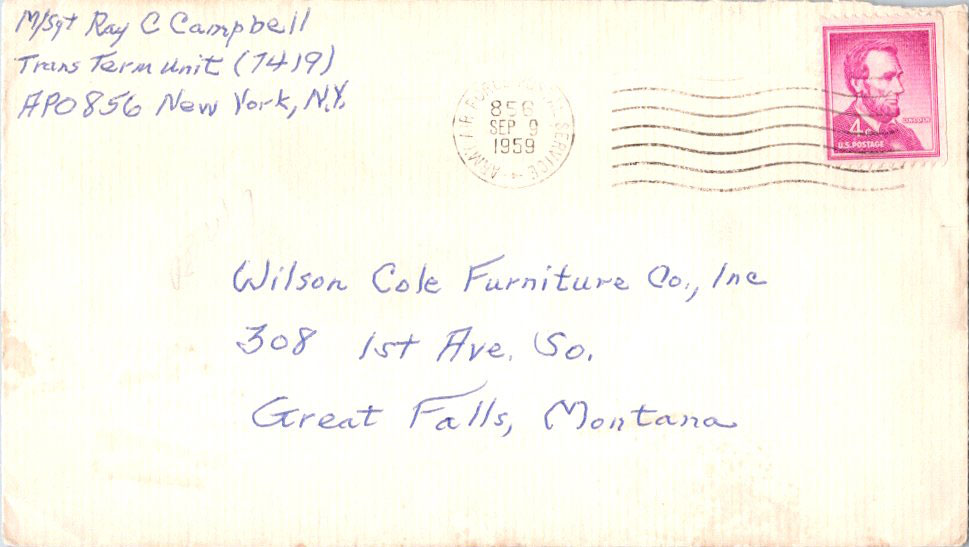 M/Sgt Ray C Campbell
Trans Term Unit (7419)
APO 856 New York, N.Y.
ARMY AIR FORCE POSTAL SERVICE
856
SEP 9
1959
LINCOLN
4¢
U.S. POSTAGE
Wilson Cole Furniture Co., Inc
308 1st Ave. So.
Great Falls, Montana